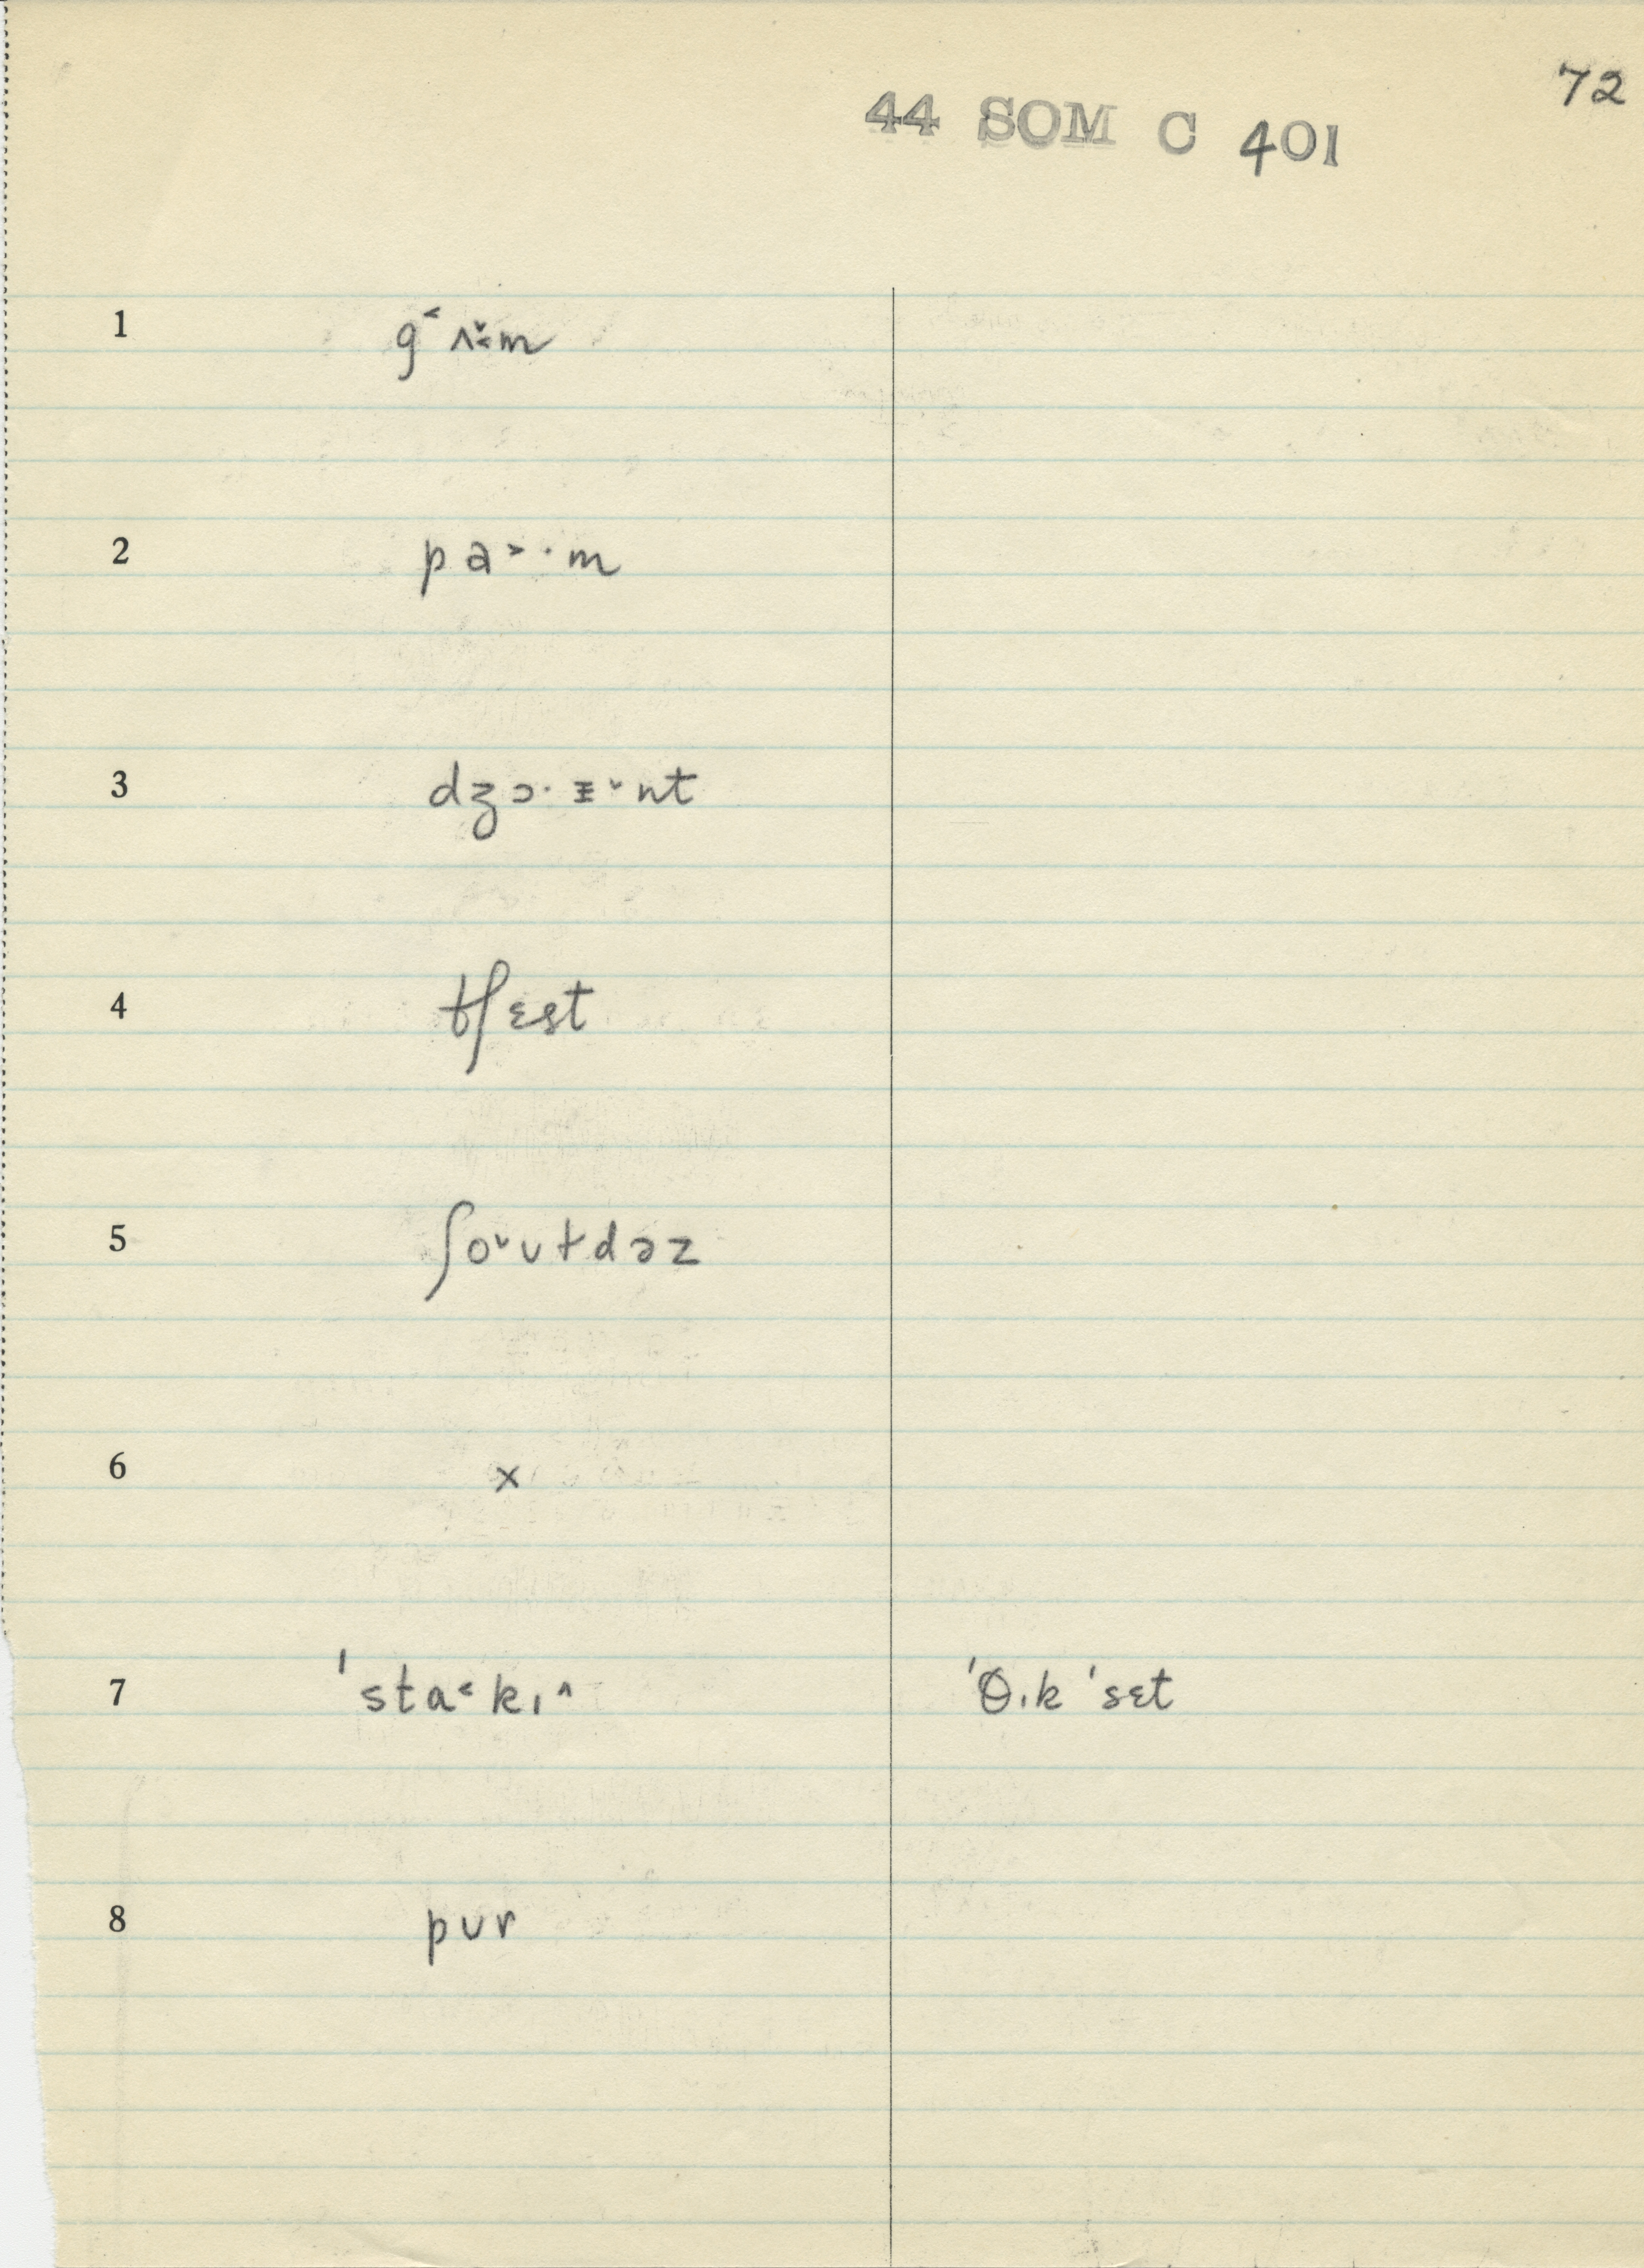 72
44 SOM C 401
1 g˂ ʌ̌˂m
2 pa˃·m
3 dʒɔ·ɪ̵ˇnt
4 tʃɛst
5 ʃoˇʊɫdəz
6 x
7 'sta˂kɪ^ 'θɪk 'sɛt
8 pʊr